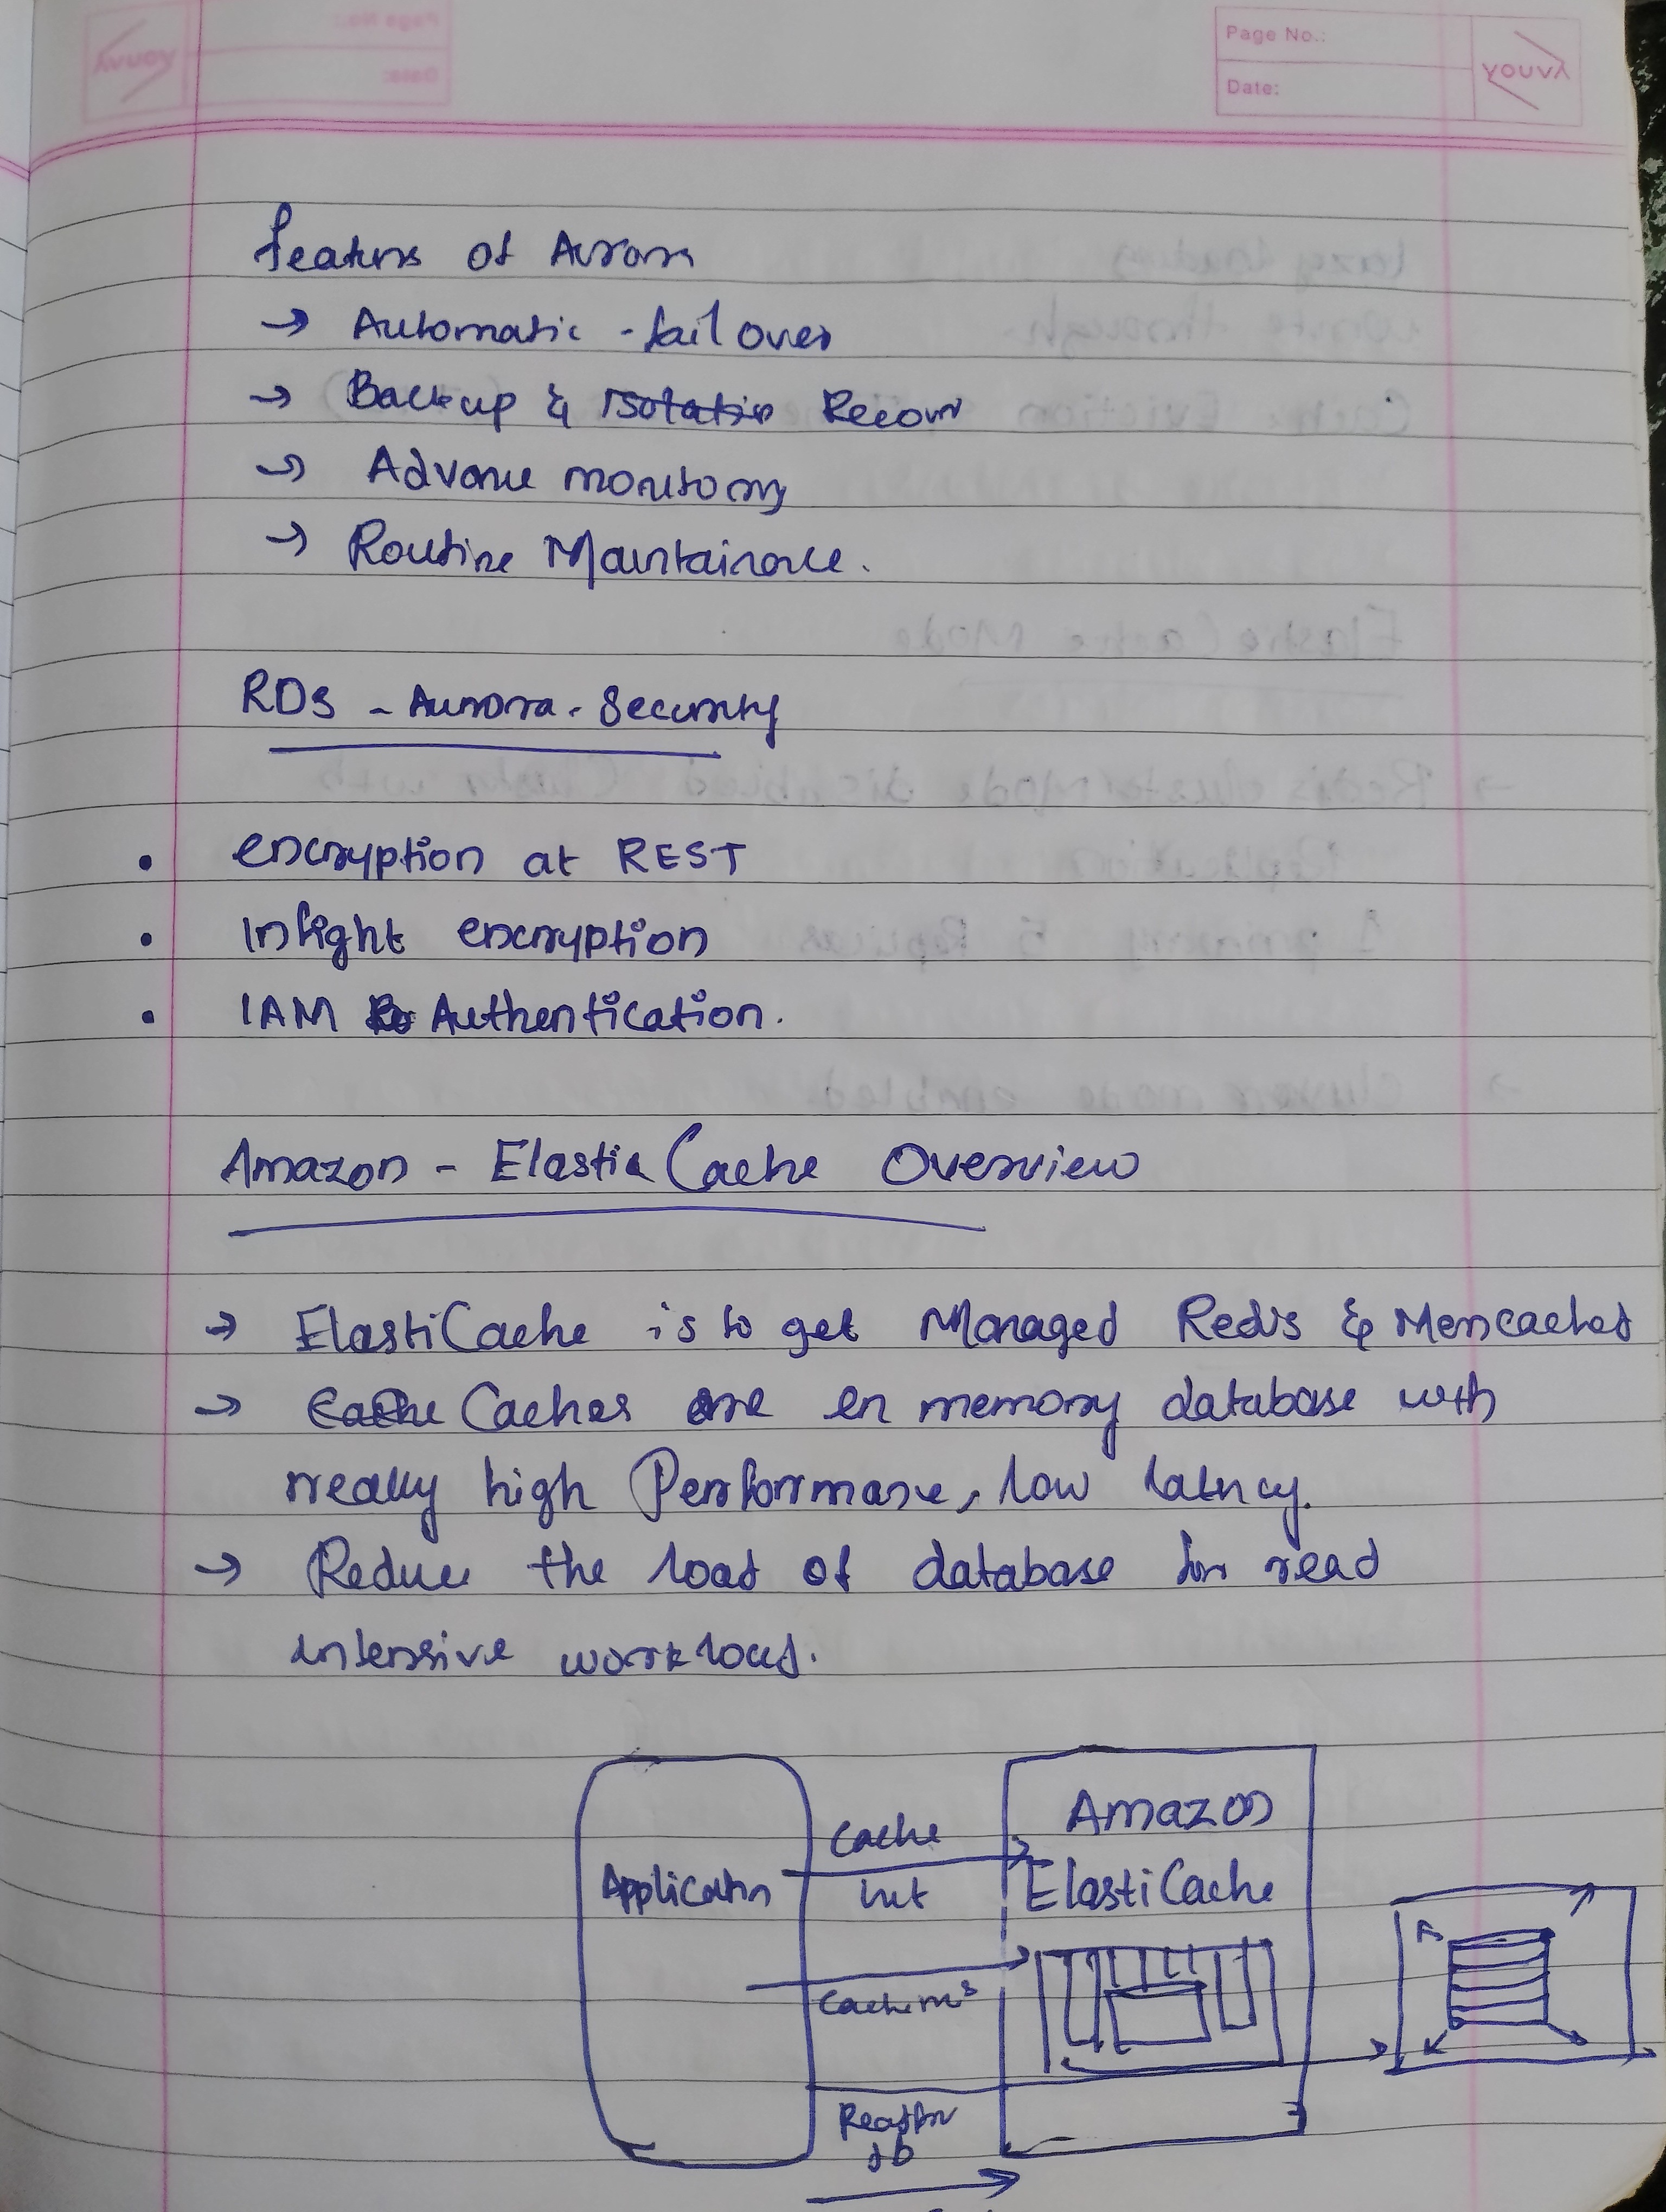 Page No.:
Date:
youva
Featurs of Aurora
→ Automatic - fail over
→ Backup & Isolation Recovr
→ Advance monitoring
→ Routine Maintainance.
RDS - Aurora - Security
• encryption at REST
• Inflight encryption
• IAM Authentication.
Amazon - ElastiCache Overview
→ ElastiCache is to get Managed Redis & Memcached
→ Cache Caches are in memory database with
really high Performance, low latency.
→ Reduce the load of database for read
intensive workload.
Application
Cache
hit
Amazon
ElastiCache
Cache
Read from
db